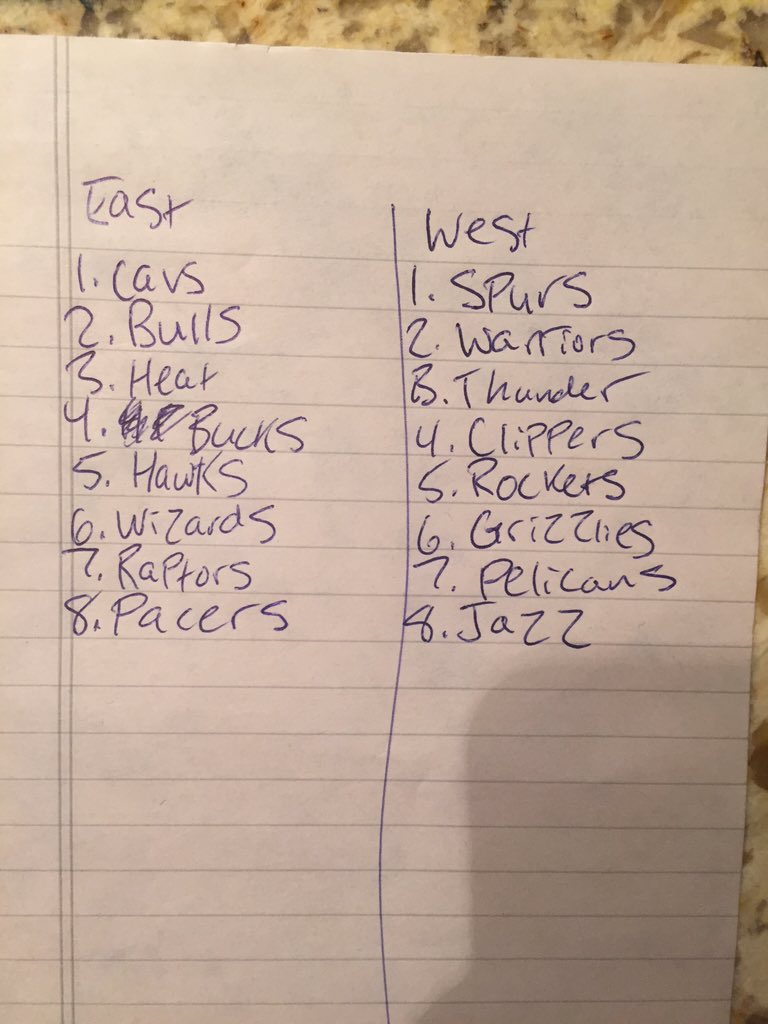 East
1. Cavs
2. Bulls
3. Heat
4. Bucks
5. Hawks
6. Wizards
7. Raptors
8. Pacers
West
1. Spurs
2. Warriors
3. Thunder
4. Clippers
5. Rockets
6. Grizzlies
7. Pelicans
8. Jazz